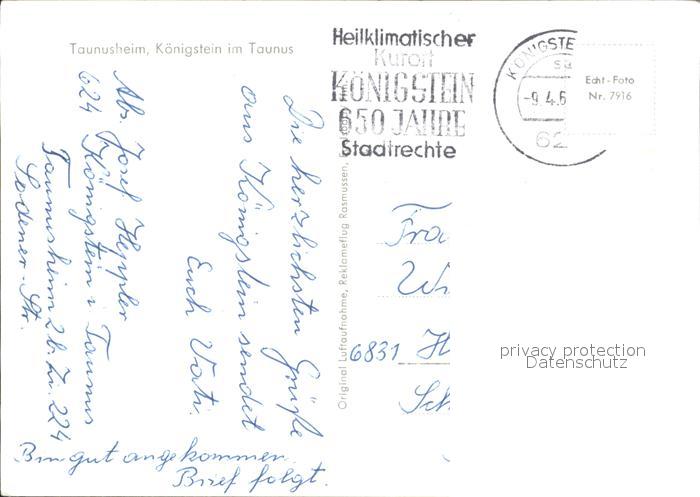 Taunusheim, Königstein im Taunus
Heilklimatischer
Kurort
KÖNIGSTEIN
650 JAHRE
Stadtrechte
KÖNIGSTE
-9.4.6
62
Echt-Foto
Nr. 7916
Abs. Josef Heppler
624 Königstein i Taunus
Taunusheim 2 b. Zi. 224
Sodener-Str.
Die herzlichsten Grüße
aus Königstein sendet
Euch Vati.
Bin gut angekommen.
Brief folgt.
Original Luftaufnahme, Reklameflug Rasmussen,
Fra
Wi
6831 H
Sch
privacy protection
Datenschutz